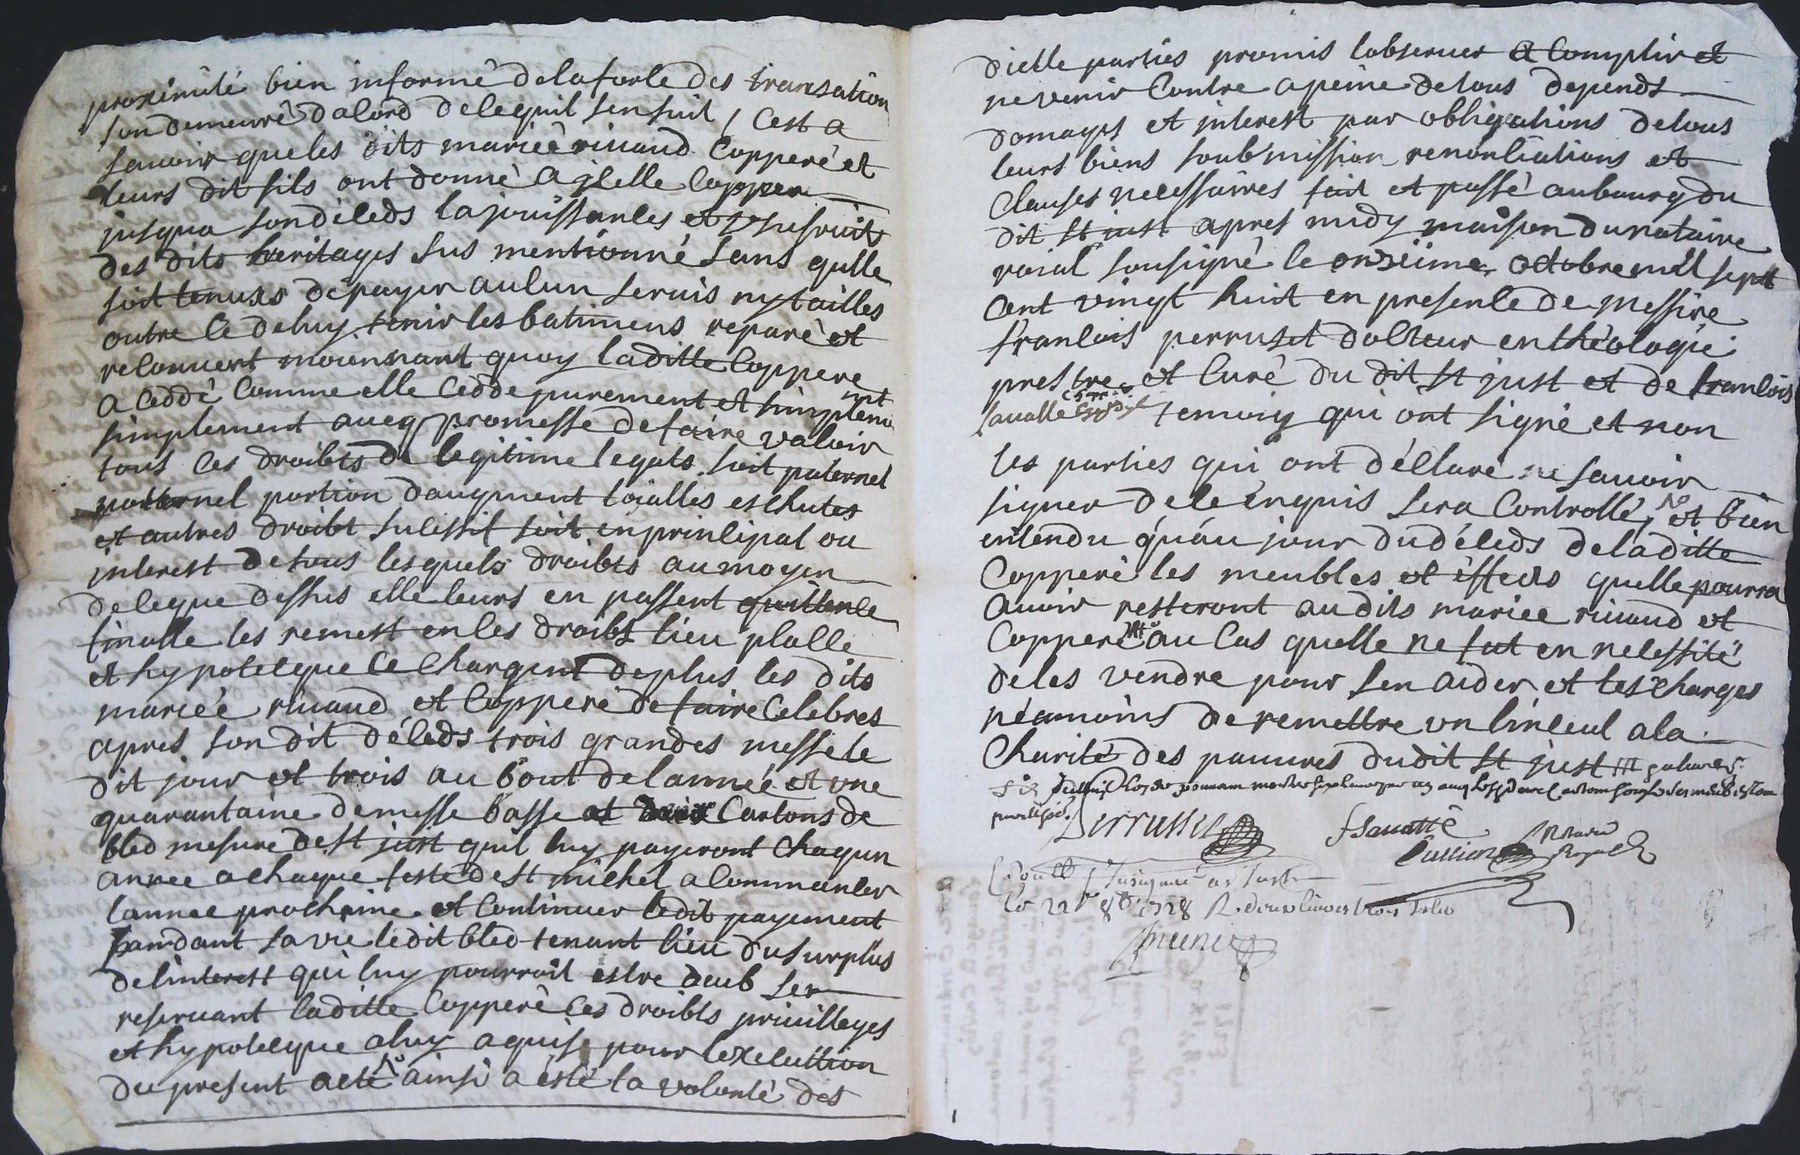 proximité bien informé de la forle des transation
son demeuré dalord de le quil sen suit / Cest a
sauoir que les dits mariéé riuaud Copperé et
leurs dit fils ont donné a jlelle Copper
jusqua son déleds la jouissanles et
des dits heritages sus mentionné sans quelle
soit tenues de payer aulun seruis ny tailles
outre le de luy tenir les batimens reparé et
relouuert moiennant quoy laditte Coppere
a Ceddé Comme elle Cedde purement et
simplement aueq promesse de faire valoir
tous Ces droibts de legitime legats soit paternel
portion daugment loialles eschutes
et autres droibt sulessif soit en prinlipal ou
interest de tous lesquels droibts au moyen
de leque dessus elle leurs en passent quittenle
finalle les remest en les droibt lieu plalle
et hypotelque Ce Chargent de plus les dits
mariéé riuaud et Copperé de faire Celebres
apres son dit déleds trois grandes messe le
dit jour et trois au bout de lannéé et vne
quarantaine de messe basse et Cartons de
bled mesure de St just quil luy payeront Chaqun
année a chaque feste de St michel a Commenler
lannee prochaine et Continuer ledit payement
pandant sa vie ledit bled tenant lieu du surplus
de linterest qui luy pourroit estre deub ser
reseruant laditte Copperé Ces droibts priuilleges
et hypotelque a luy aquise pour lexeluttion
du present acte ainsi a esté la volonté des
dielle parties promis lobseruer et Complir et
ne venir Contre a peine de tous depends
domages et interest par obligations de tous
leurs biens soubmission renonliations et
Clauses nelessaires fait et passé au bourg du
dit St just apres midy maison du notaire
roial sousigné le onzieme octobre mil sept
cent vingt huit en presenle de messire
franlois perruset dolteur en théologie
prestre et Curé du dit St just et de franlois
sauatte temoin qui ont signé et non
les parties qui ont déllaré ne sauoir
signer de le enquis sera Controllé, et bien
entendu quau jour du déleds de laditte
Copperé les meubles et effects quelle pourra
auoir resteront au dits mariee riuaud et
Copperé au Cas quelle ne fut en nelessité
de les vendre pour sen aider et les Charges
néamoins de remettre vn linleul a la
Charité des pauures dudit St just
Perrusset fsauatté
le 22e 8bre 1728 R. deux liures